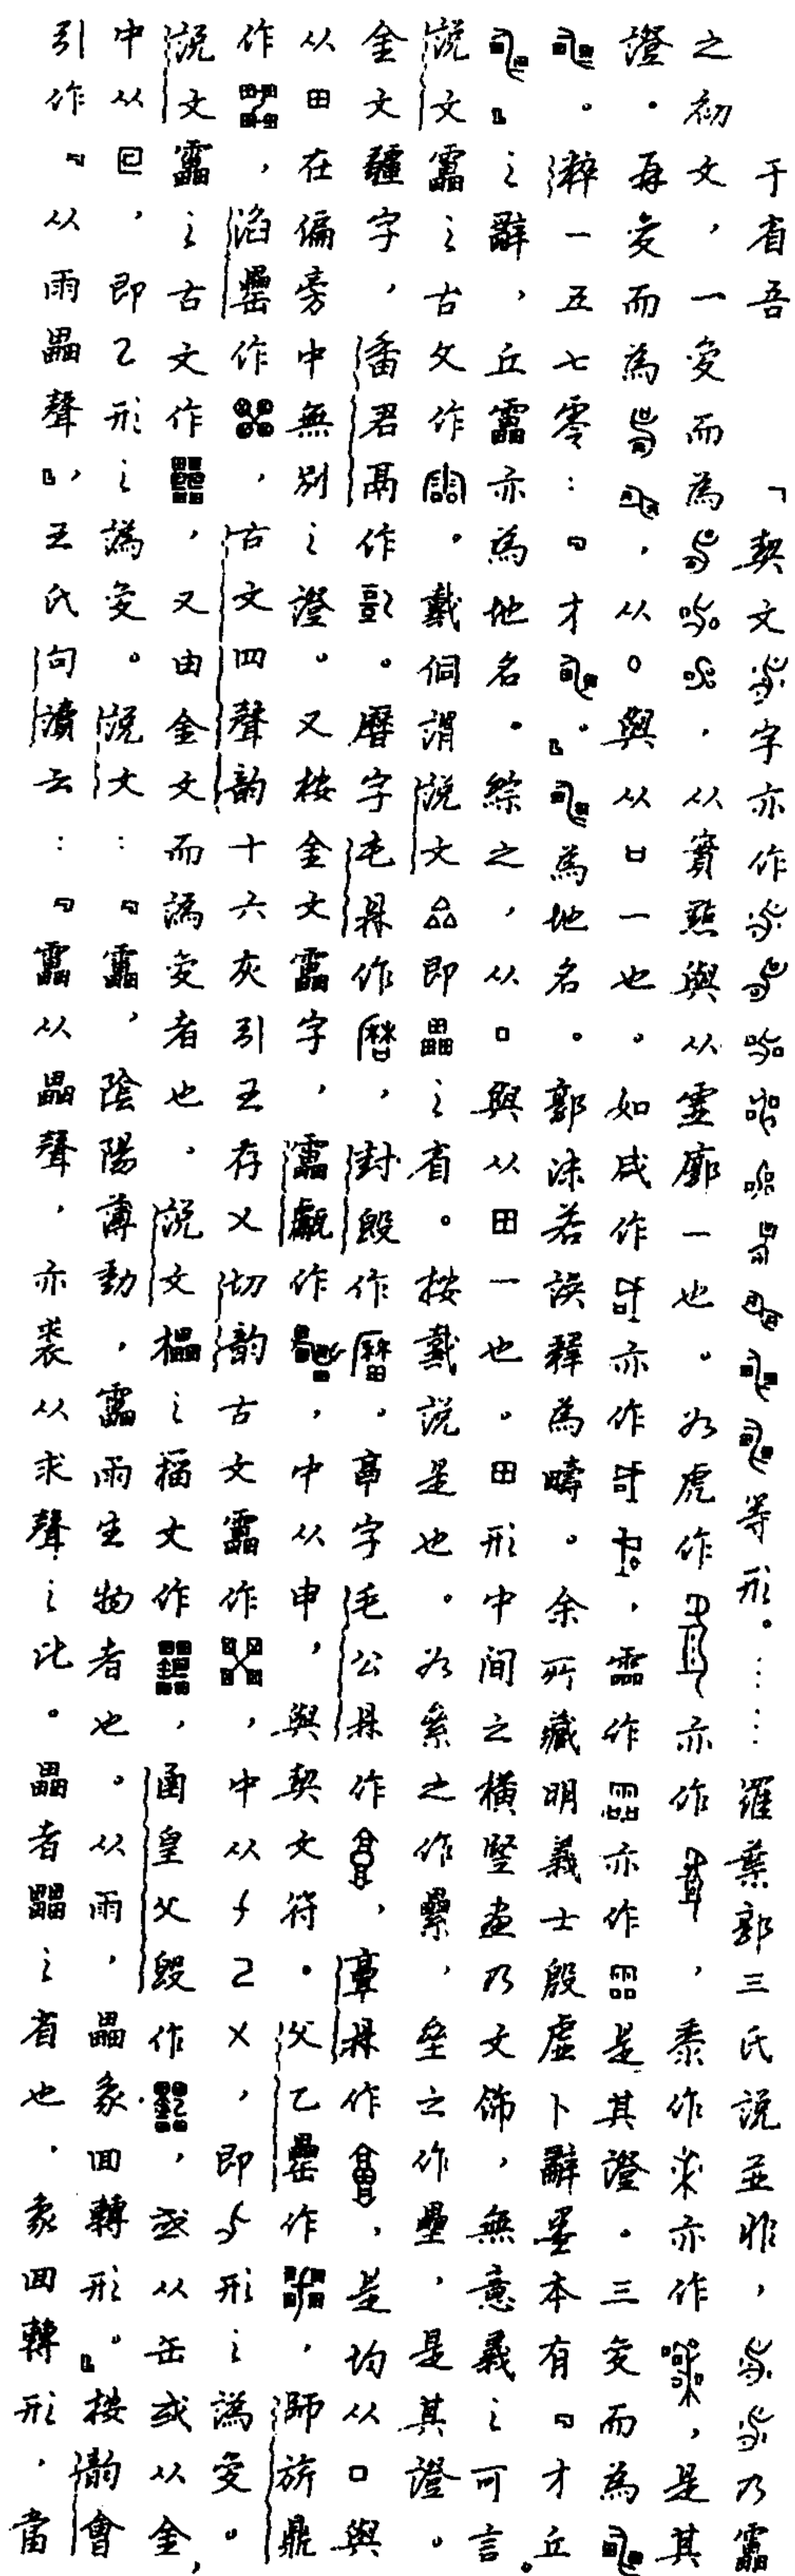 于省吾　「契文字亦作等形。……羅葉郭三氏說並非，乃靁
之初文，一變而為，从實點與从虛廓一也。如虎作亦作，黍作亦作，是其
證。再變而為，从○與从口一也。如成作亦作，霝作亦作是其證。三變而為
。粹一五七零：「才。」為地名。郭沫若誤釋為疇。余所藏明義士殷虛卜辭墨本有「才丘
」之辭，丘靁亦為地名。綜之，从口與从田一也。田形中間之橫豎畫乃文飾，無意義之可言。
說文靁之古文作。戴侗謂說文厽即畾之省。按戴說是也。如絫之作纍，垒之作壘，是其證。
金文疆字，番君鬲作。曆字屯鼎作，封𣪘作。字毛公鼎作，鼎作，是均从口與
从田在偏旁中無別之證。又按金文靁字，甗作，中从申，與契文符。父乙罍作，師旂鼎
作，淊罍作，古文四聲韵十六灰引王存乂切韵古文靁作，中从乙，即形之譌變。
說文靁之古文作，又由金文而譌變者也。說文櫑之籀文作，函皇父𣪘作，或从缶或从金，
中从，即乙形之譌變。說文：「靁，陰陽薄動，靁雨生物者也。从雨，畾象回轉形。」按韵會
引作「从雨畾聲」，王氏句讀云：「靁从畾聲，亦裘从求聲之比。畾者之省也，象回轉形，當